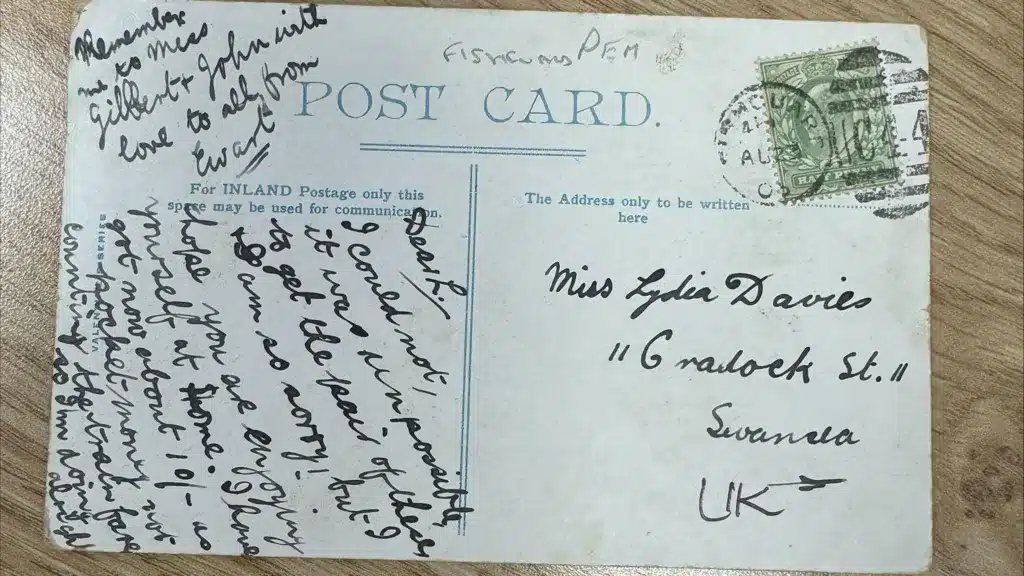 Remember
me to Miss
Gilbert & John with
love to all from
Ewart
PEM
POST CARD.
For INLAND Postage only this
space may be used for communication.
The Address only to be written
here
AU
Dear L.
I could not,
it was impossible,
to get the pair of these
& I am so sorry! but I
hope you are enjoying
yourself at home. I have
got now about 10/- as
pocket-money not
counting the train fare
so I'm doing
alright
Miss Lydia Davies
"Cradock St."
Swansea
UK